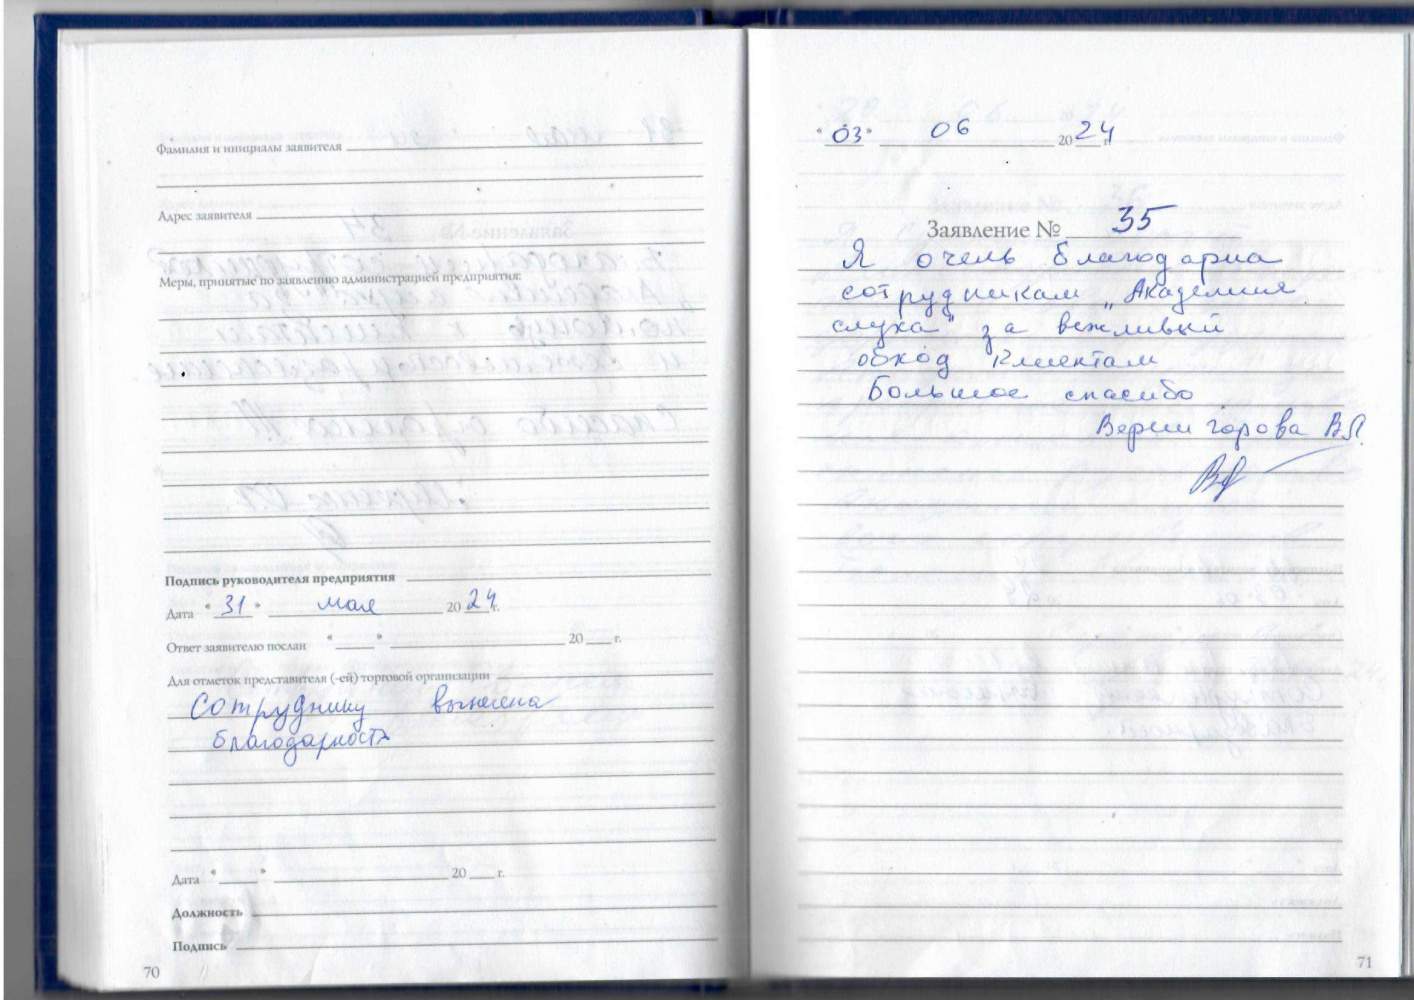 Фамилия и инициалы заявителя
Адрес заявителя
Меры, принятые по заявлению администрацией предприятия:
Подпись руководителя предприятия
Дата "31" мая 2024 г.
Ответ заявителю послан " " 20 г.
Для отметок представителя (-ей) торговой организации
Сотруднику вынесена
благодарность
Дата " " 20 г.
Должность
Подпись
70
"03" 06 2024 г.
Заявление № 35
Я очень благодарна
сотрудникам „Академия
слуха" за вежливый
обход клиентам
Большое спасибо
Вершигорова В.П.
71